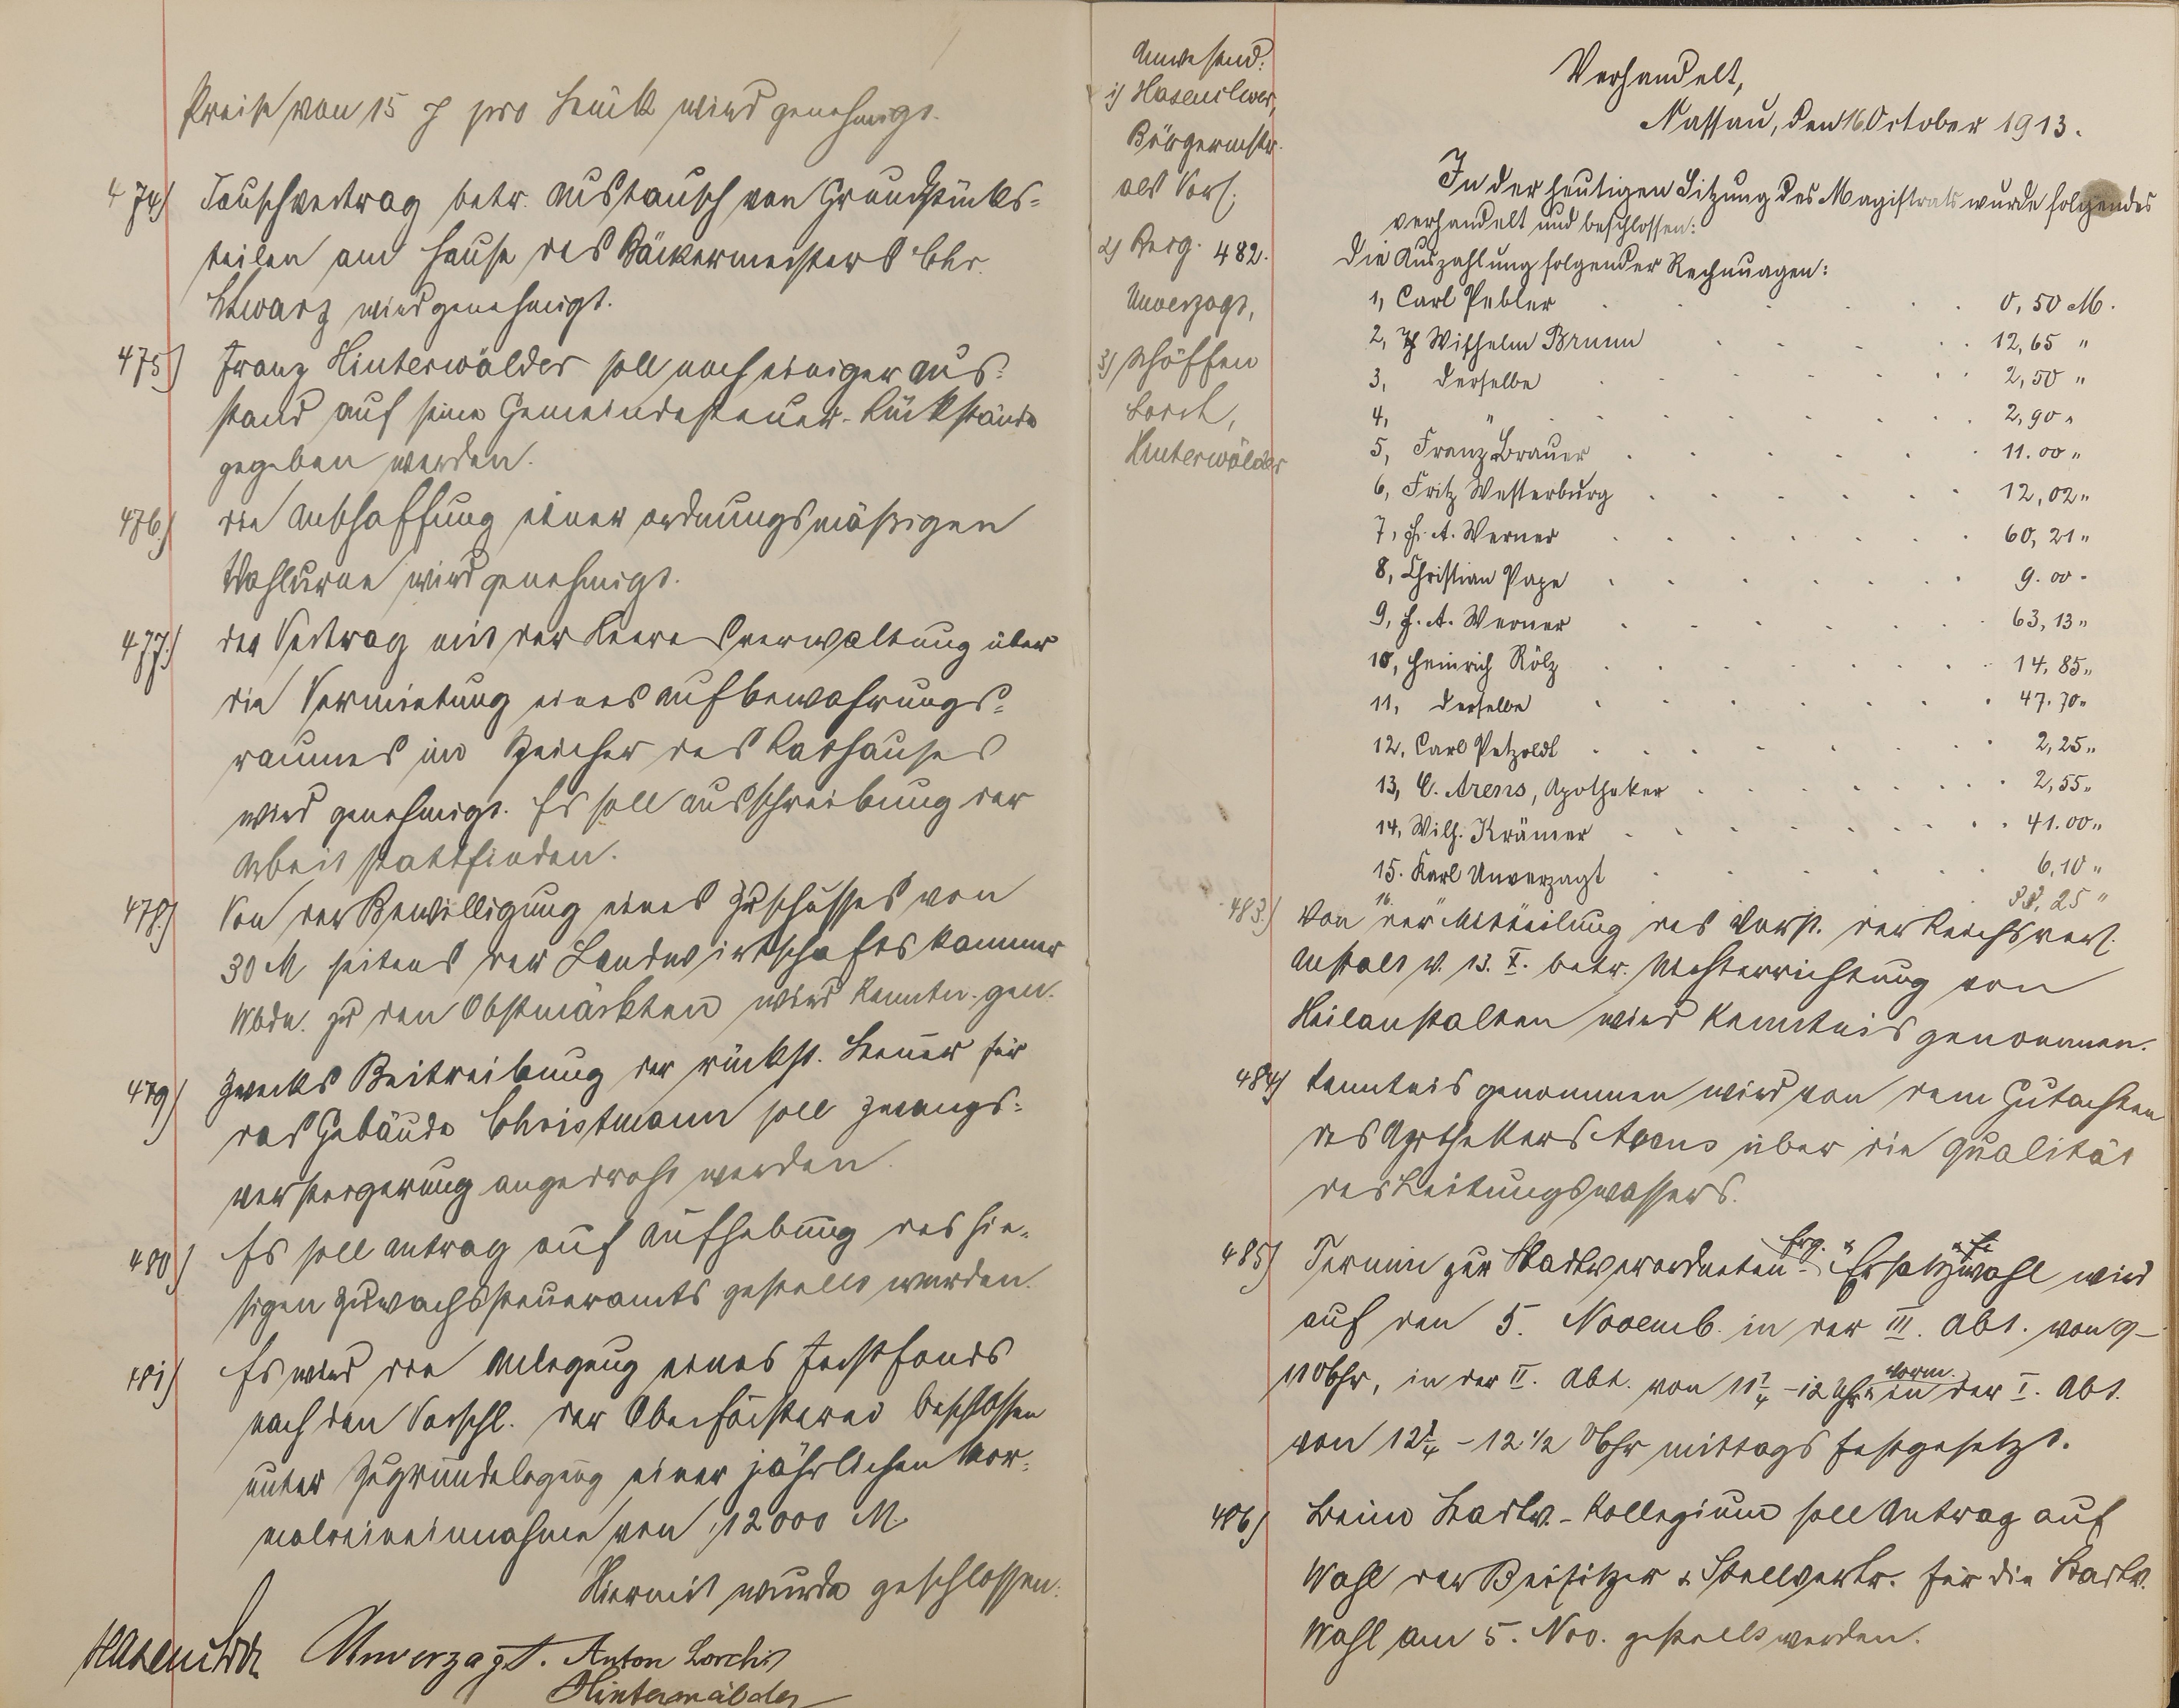 Preise von 15 ₰ pro Stück wird genehmigt.
474) Tauschvertrag betr. Austausch von Grundstücks-
teilen am Hause des Bäckermeisters Chr.
Schwarz wird genehmigt.
475) Franz Hinterwälder soll noch einiger Aus-
stand auf seine Gemeindesteuer-Rückstände
gegeben werden.
476.) Die Anschaffung einer ordnungsmäßigen
Wahlurne wird genehmigt.
477.) Der Vertrag mit der Heeresverwaltung über
die Vermietung eines Aufbewahrungs-
raumes im Speicher des Rathauses
wird genehmigt. Es soll Ausschreibung der
Arbeit stattfinden.
478.) Von der Bewilligung eines Zuschusses von
30 M seitens der Landwirtschaftskammer
Wbdn. zu den Obstmärkten wird Kenntn. gen.
479) Zwecks Beitreibung der rückst. Steuer für
das Gebäude Christmann soll Zwangs-
versteigerung angedroht werden.
480) Es soll Antrag auf Aufhebung des hie-
sigen Zuwachssteueramts gestellt werden.
481) Es wird die Anlegung eines Forstfonds
nach den Vorschl. der Oberförsterei beschlossen
unter Zugrundelegung einer jährlichen Nor-
malreineinnahme von 12000 M.
Hiermit wurde geschlossen:
Hasenclever Unverzagt. Anton Lorch
Hinterwälder
Anwesend:
1) Hasenclever,
Bürgermstr.
als Vors.
2) Beig.
Unverzagt,
3) Schöffen
Lorch,
Hinterwälder
Verhandelt,
Nassau, den 16 October 1913.
In der heutigen Sitzung des Magistrats wurde folgendes
verhandelt und beschlossen:
482. Die Auszahlung folgender Rechnungen:
1, Carl Pebler 0,50 M.
2, Wilhelm Brunn 12,65 "
3, Derselbe 2,50 "
4, " 2,90 "
5, Franz Brauer 11.00 "
6, Fritz Westerburg 12,02 "
7, H. A. Werner 60,21 "
8, Christian Pape 9.00 "
9, H. A. Werner 63,13 "
10, Heinrich Rölz 14,85 "
11, Derselbe 47.70 "
12, Carl Petzoldt 2,25 "
13, C. Arens, Apotheker 2,55 "
14, Wilh. Krämer 41.00 "
15. Karl Unverzagt 6,10 "
16. " 25 "
483.) Von der Mitteilung des Vorst. der Reichsvers.
Anstalt v. 13. X. betr. Nichterrichtung von
Heilanstalten wird Kenntnis genommen.
484) Kenntnis genommen wird von dem Gutachten
des Apothekers Arens über die Qualität
des Leitungswassers.
485) Termin zur Stadtverordneten- Erg. & Ersatzwahl wird
auf den 5. Novemb. in der III. Abt. von 9-
11 Uhr, in der II. Abt. von 11 1/4 - 12 Uhr vorm. & in der I. Abt.
von 12 1/4 - 12 1/2 Uhr mittags festgesetzt.
486) Beim Stadtv.-Kollegium soll Antrag auf
Wahl der Beisitzer & Stellvertr. für die Stadtv.
Wahl am 5. Nov. gestellt werden.